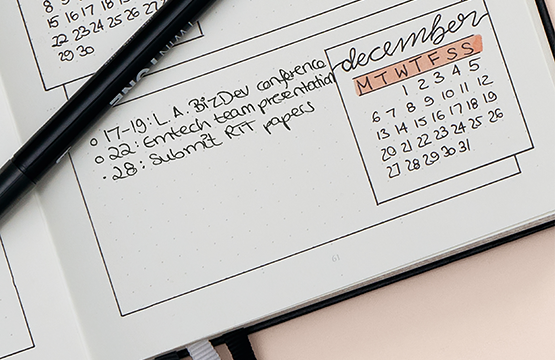 15 16 17 18
22 23 24 25 26 27 28
29 30
TWIN
december
M T W T F S S
1 2 3 4 5
6 7 8 9 10 11 12
13 14 15 16 17 18 19
20 21 22 23 24 25 26
27 28 29 30 31
17-19: L.A. BizDev conference
22: Emtech team presentation
28: Submit RTT papers
61